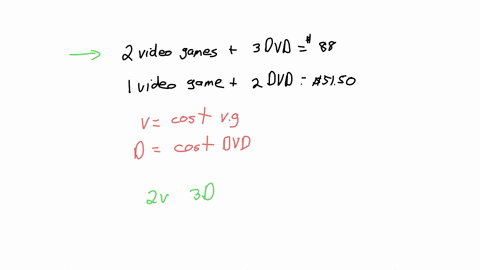 2 video games + 3 DVD = $ 88
1 video game + 2 DVD = $51.50
v = cost v.g
D = cost DVD
2v 3D